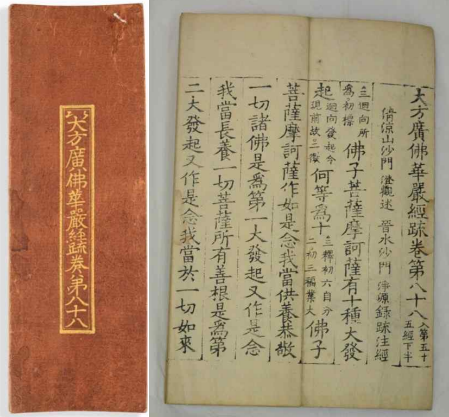 大方廣佛華嚴經疏卷第八十八
大方廣佛華嚴經疏卷第八十八 入第五十
五經下半
清涼山沙門 澄觀述 晉水沙門 淨源錄疏注經
三迴向所
爲初標 佛子菩薩摩訶薩有十種大發
起 何等爲十 佛子
菩薩摩訶薩作如是念我當供養恭敬
一切諸佛是爲第一大發起又作是念
我當長養一切菩薩所有善根是爲第
二大發起又作是念我當於一切如來